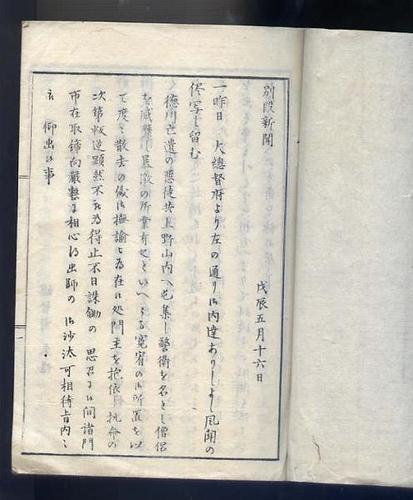 別段新聞
戊辰五月十六日
一昨日 大總督府より左の通り御内達ありしよし風聞の
侭写し留む
徳川亡遺の惡徒共上野山内へ屯集し警衛を名とし僧侶
を威し暴激の所業有之といへとも寛宥の御所置を以
て度々散去の儀御撫諭も為在候処門主を抱抗命の
次第叛逆顯然不被為得止不日誅鋤の 思召に候間諸門
市在取締向嚴整に相心得出師の 御沙汰可相待旨内々
被 仰出候事